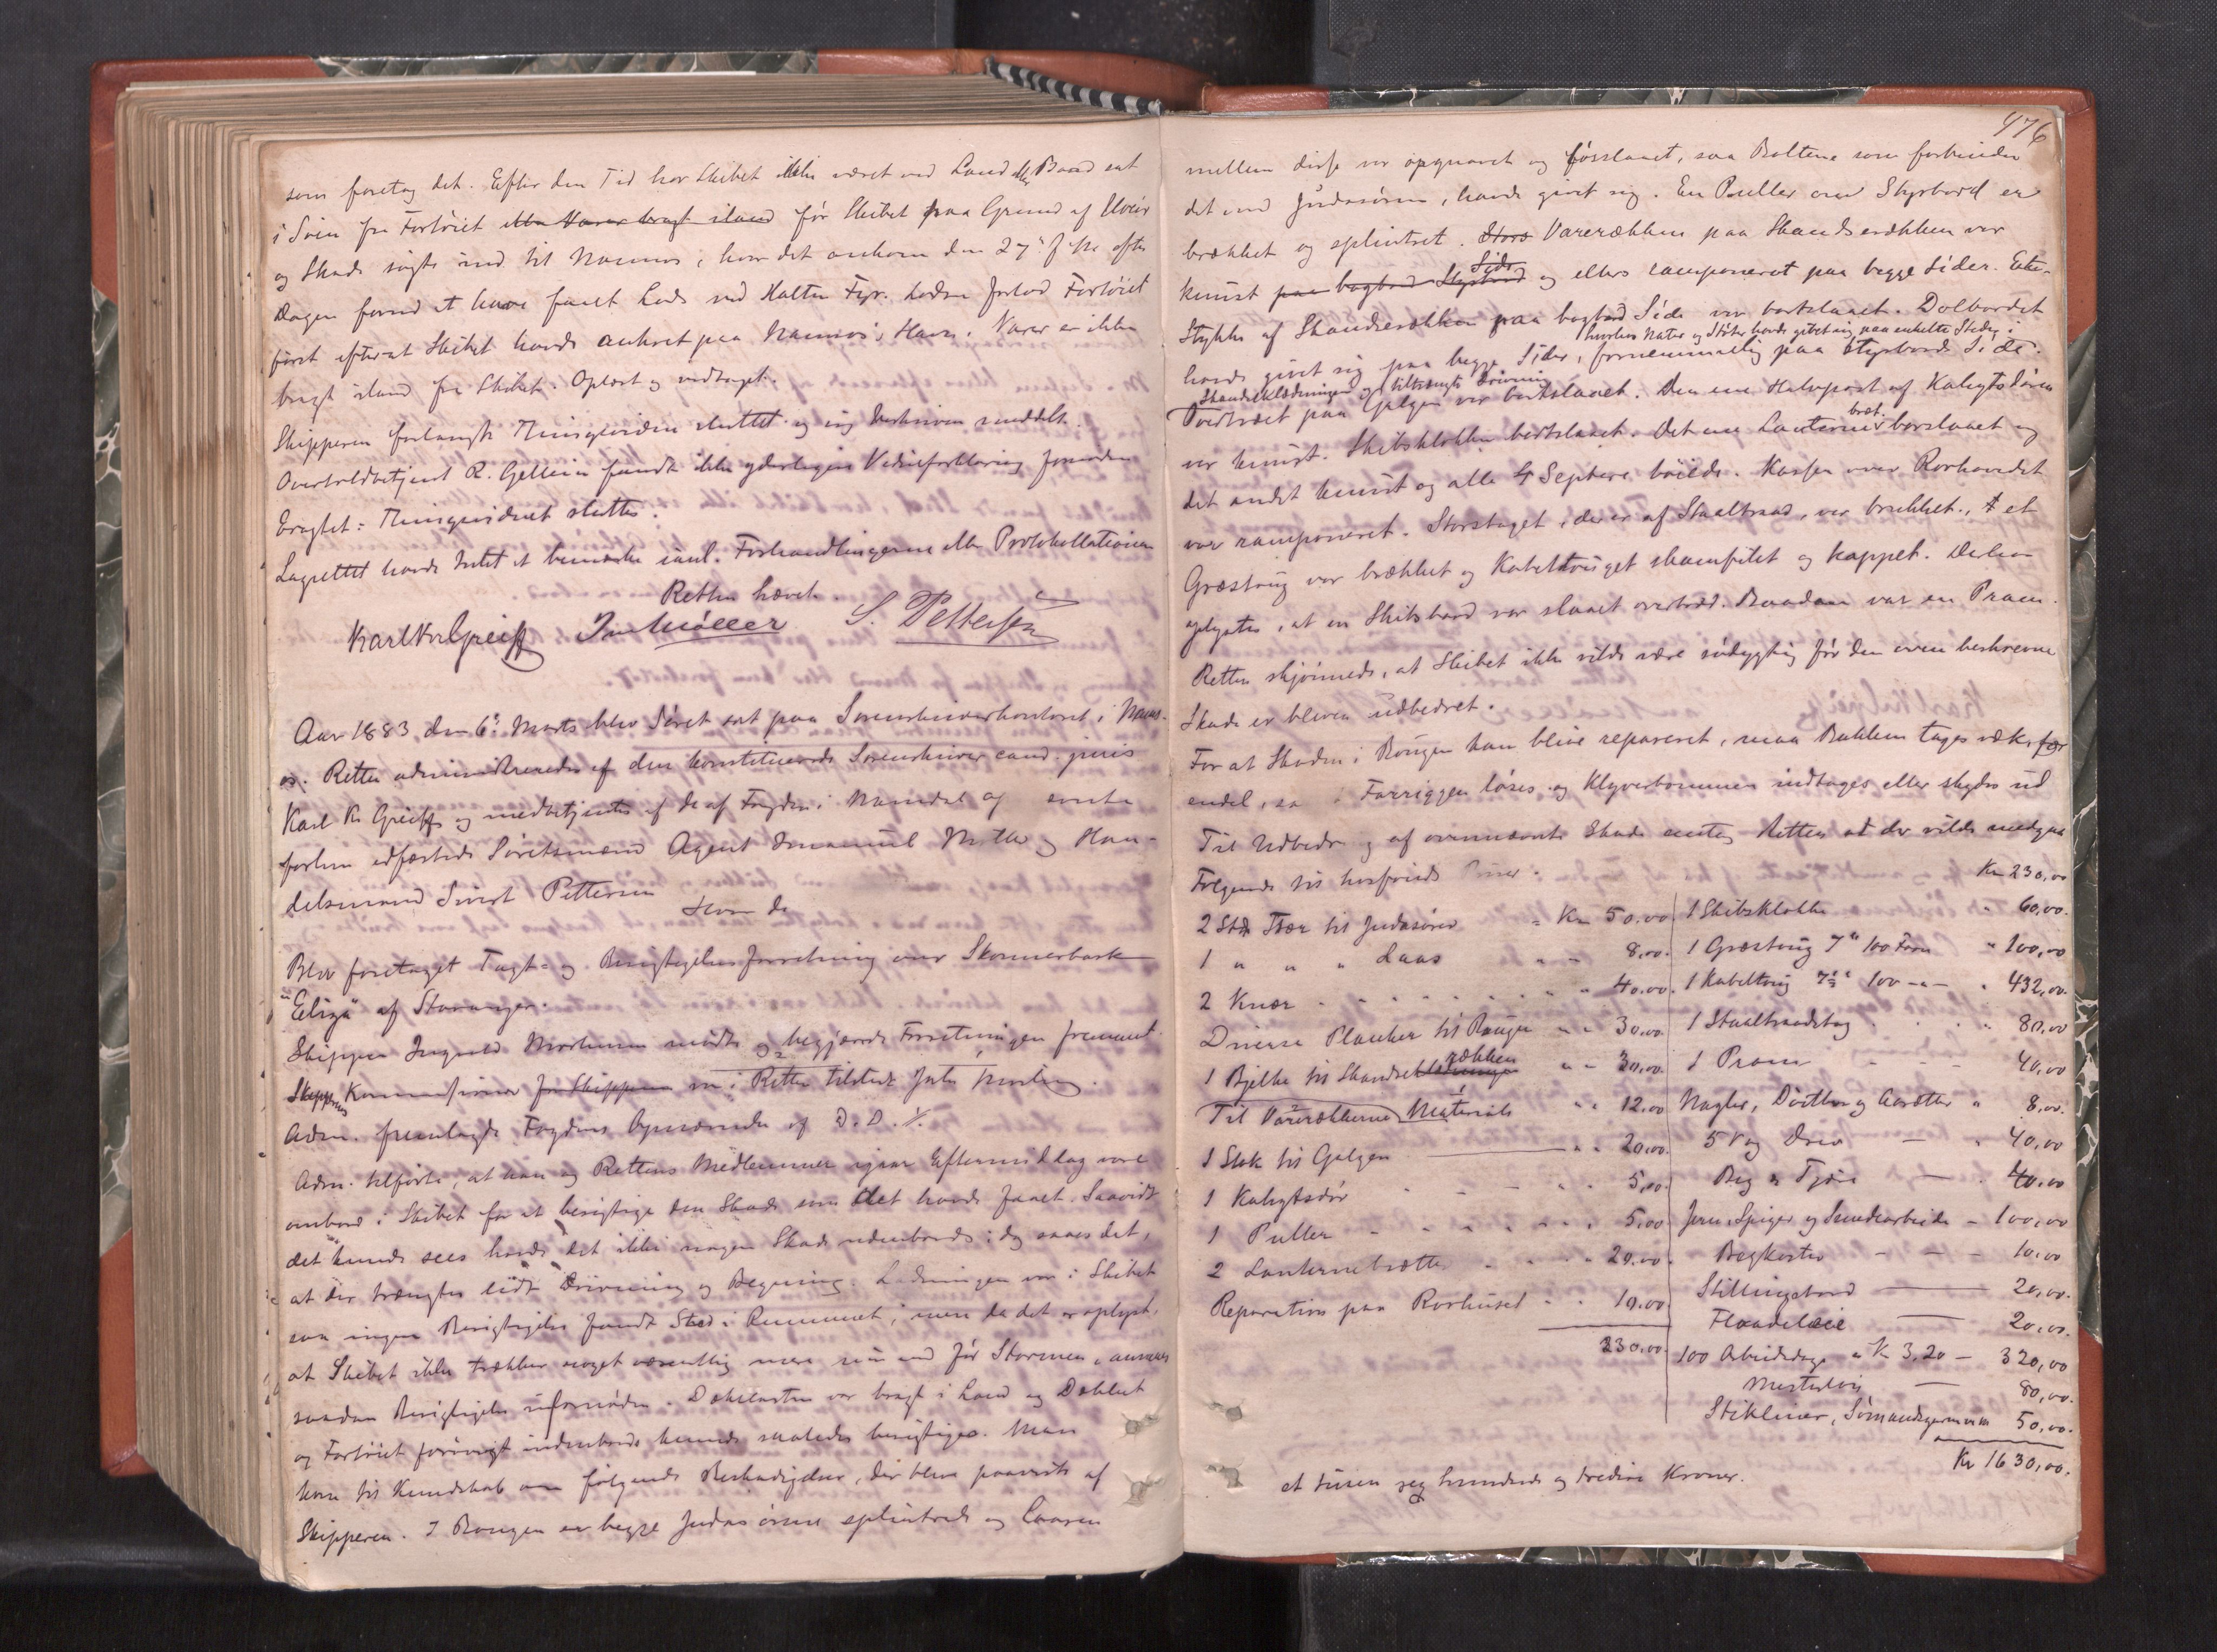 som foretog det. Efter den Tid har Skibet ikke været ved Land eller Baad sat
i Søen fra Fartøiet eller Varer bragt iland før Skibet paa Grund af Uveir
og Skade søgte ind til Namsos, hvor det ankom den 27de f. efter
Dagen forud at have faaet Lods ved Halten Fyr. Lodsen forlod Fartøiet
først efterat Skibet havde ankret paa Namsos's Havn. Varer er ikke
bragt iland fra Skibet. Oplæst og vedtaget.
Skipperen forlangte Thingsvidnet sluttet og sig Beskreven meddelt.
Overtoldbetjent R. Gellein fandt ikke yderligere Vidneforklaring fornøden
Eragtet: Thingsvidnet sluttes.
Lagrettet havde Intet at bemærke imod Forhandlingerne eller Protokollationen
Retten hævet.
Karl Kr. Greiff Im Møller S. Pettersen
Aar 1883 den 6te Marts blev Søret sat paa Sorenskriverkontoret i Nams-
os. Retten administreredes af den konstituerede Sorenskriver cand. juris
Karl K. Greiff og medbetjentes af de af Fogden i Namdal og
forhen edfæstede Søretsmænd Agent Immanuel Møller og Han-
delsmand Sivert Pettersen
Hvor da
Blev foretaget Taxt- og Besigtigelses Forretning over Skonnerbark
"Eliza" af Stavanger.
Skipper Ingvald mødte og begjærede Forretningen fremmet.
Skipperens Kommissionær for Skipperen var i Retten tilstede
Adm. fremlagde Fogdens Opnævnelse af D. D. 1/.
Adm. tilførte, at han og Rettens Medlemmer igaar Eftermiddag vare
ombord i Skibet for at besigtige den Skade som det havde faaet. Saavidt
det kunde sees havde det ikke nogen Skade udenbords; dog saaes det,
at der trængtes lidt Drivning og Begning. Ladningen var i Skibet
saa ingen Besigtigelse fandt Sted i Rummet, men da det er oplyst,
at Skibet ikke trækker noget væsentlig mere nu end før Stormen, ansaaes
saadan Besigtigelse ufornøden. Dækslasten var bragt i Land og Dækket
og Fartøiet forøvrigt indenbords kunde saaledes besigtiges. Man
kom til Kundskab om følgende Beskadigelser, der bleve paaviste af
Skipperen. I Bougen er begge Judasørene splintrede og Laasen
476
mellem disse var opgnavet og forslaaet, saa Boltene som forbinder
det med Judasørene, havde givet sig. En Puller om Styrbord er
brækket og splintret. Store Varerækken paa Skandserækken var
knust paa bagbord Styrbord Side og ellers ramponeret paa begge Sider. Ette
Stykke af Skandserækken paa bagbord Side var bortslaaet. Dolbordet
hvorhos Nater og Støtter havde givet sig paa enkelte Steder i
havde givet sig paa begge Sider, fornemmelig paa Styrbords Side.
Skandseklædningen og tiltrængte Drivning
Overbræt paa Galgen var bortslaaet. Den ene Halvpart af Kahytsdøren
var knust. Skibsklokken bortslaaet. Det ene Lanternebræt borslaaet og
det andet knust og alle 4 Septere bøiede. Kassen over Rorhovedet
var ramponeret. Storstaget, der er af Staaltraad, var brækket, et
Græstoug var brækket og Kabeltouget skamfilet og kappet. Derhos
oplystes, at en Skibsbaad var slaaet overbord. Baaden var en Pram.
Retten skjønnede, at Skibet ikke vilde være sødygtig før den oven beskrevne
Skade er bleven udbedret.
For at Skaden i Bougen kan blive repareret, maa Bakken tages væk for
endel, saa Forriggen løses og Klyverbommen indtages eller skydes ud
Til Udbedring af ovennævnte Skade antog Retten at der vilde medgaa
Følgende til hosføiede Priser.
Kr 230,00
2 Stk Træer til Judasører " Kr 50.00 1 Skibsklokke " 60,00.
1 " " " Laas " " 8,00. 1 Græstoug 7" 100 Favn " 100,00
2 Knær " 40.00. 1 Kabeltoug 7½" 100 -"- " 432,00.
Diverse Planker til Bougen " " 30,00 1 Staaltraadstag " 80,00
1 Bjelke til Skandseklædningen rækken " " 30,00. 1 Pram 40,00
Til Varerækkerne Materiale " " 12,00 Nagler, Døitler og " 8,00.
1 Stok til Galgen " " 20,00. 5 Vog Driv — " 40,00
1 Kahytsdør " " 5,00. Beg & Tjære — " 40,00
1 Puller " " 5,00 Jern, Spiger og Smedearbeide - 100,00
2 Lanternebrætter " 20,00. Begkoster - - - 10,00
Reparation paa Rorhuset " " 10.00 Stillingsbord — 20,00.
230,00. Flaadeleie — 20,00.
100 Arbeidsdage a Kr 3,20 — 320,00
Mesterløn — 80,00.
Stikliner, Sømandsgarn m m 50,00.
Kr 1630,00.
et tusen sex hundrede og tredive Kroner.